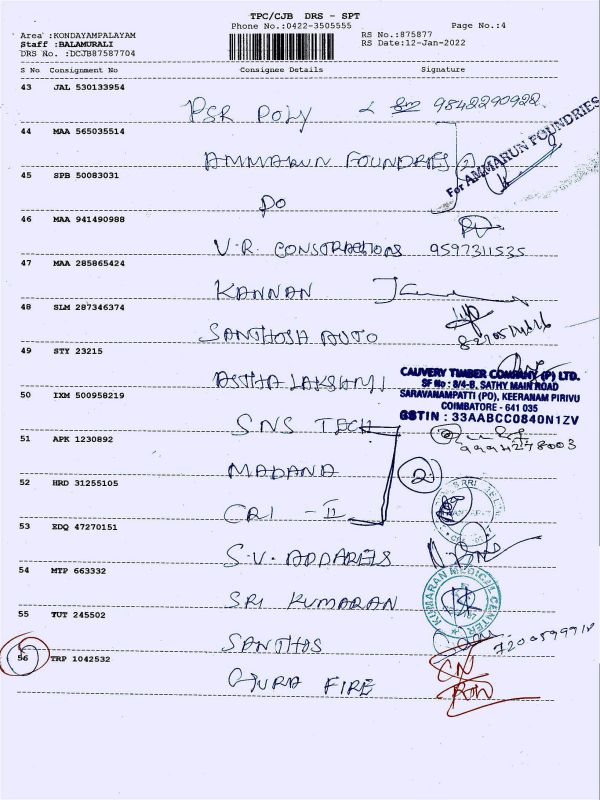 TPC/CJB DRS - SPT
Phone No.:0422-3505555 Page No.:4
Area :KONDAYAMPALAYAM RS No.:875877
Staff :BALAMURALI RS Date:12-Jan-2022
DRS No. :DCJB87587704
S No Consignment No Consignee Details Signature
43 JAL 530133954
PSR POLY 9842290922
44 MAA 565035514
AMMARUN FOUNDRIES
For AMMARUN FOUNDRIES
45 SPB 50083031
DO
46 MAA 941490988
V.R. CONSTRACTIONS 9597311535
47 MAA 285865424
KANNAN
48 SLM 287346374
SANTHOSH AUTO
49 STY 23215
ASTHA LAKSHMI
CAUVERY TIMBER COMPANY (P) LTD.
SF No : 8/4-B, SATHY MAIN ROAD
SARAVANAMPATTI (PO), KEERANAM PIRIVU
COIMBATORE - 641 035
GSTIN : 33AABCC0840N1ZV
50 IXM 500958219
SNS TECH
9994278003
51 APK 1230892
MADANA
2
52 HRD 31255105
CRI - II
53 EDQ 47270151
S.V. APPARELS
54 MTP 663332
SRI KUMARAN
KUMARAN MEDICAL CENTER
55 TUT 245502
SANTHOS
56 TRP 1042532
SURA FIRE